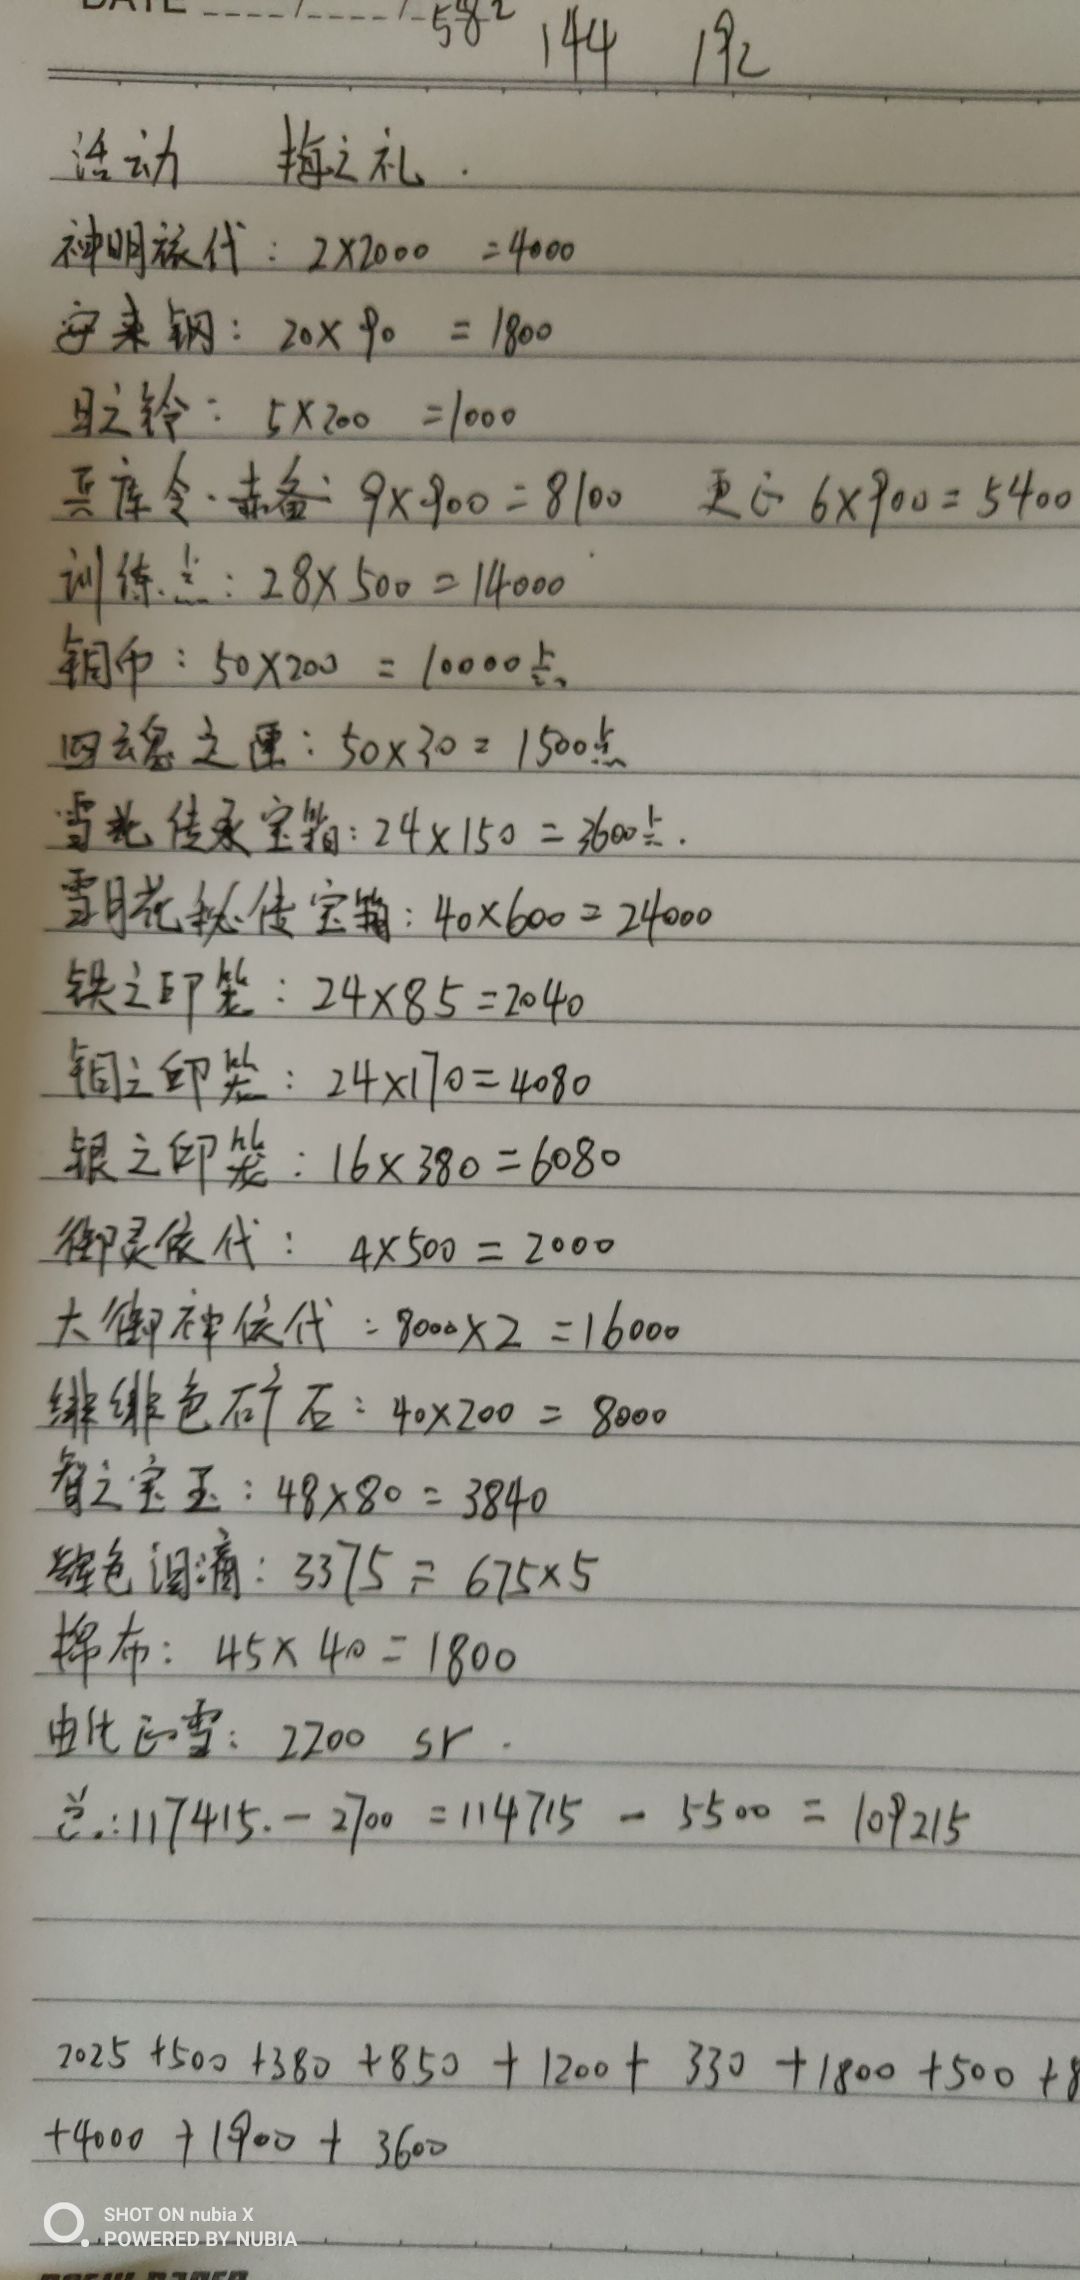 DATE
582 144 192
活动 梅之礼.
神明依代: 2×2000 =4000
安来钢: 20×90 =1800
日之铃: 5×200 =1000
兵库令·赤备: 9×900=8100 更正 6×900=5400
训练点: 28×500=14000
铜币: 50×200 =10000点
四魂之匣: 50×30=1500点
雪花传承宝箱: 24×150=3600点.
雪月花秘传宝箱: 40×600=24000
铁之印笼: 24×85=2040
铜之印笼: 24×170=4080
银之印笼: 16×380=6080
御灵依代: 4×500=2000
大御神依代: 8000×2 =16000
绯绯色矿石: 40×200=8000
智之宝玉: 48×80=3840
绯色泪滴: 3375=675×5
棉布: 45×40=1800
由比正雪: 2200 sr.
总:117415.-2700=114715-5500=109215
2025+500+380+850+1200+330+1800+500+8
+4000+1900+3600
SHOT ON nubia X
POWERED BY NUBIA